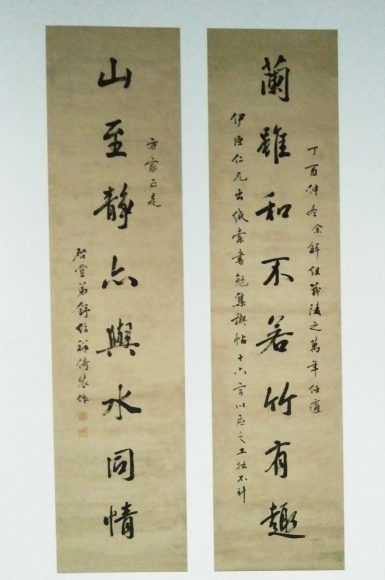 丁酉仲冬余解茂陵之萬年任適
蘭雖和不若竹有趣
伊臣仁兄出紙索書勉集禊帖十六言以應之工拙不計
方家正是
山至靜亦與水同情
堂弟舒紹祥倚裝作